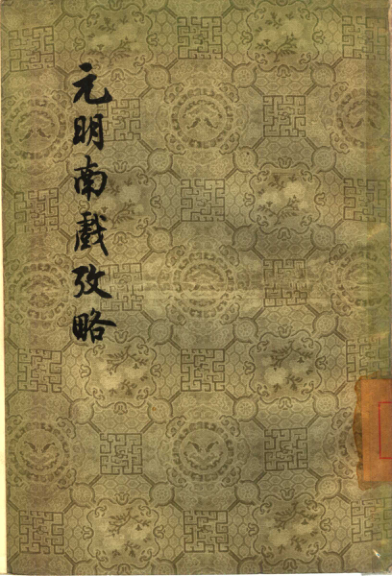 元明南戲攷略